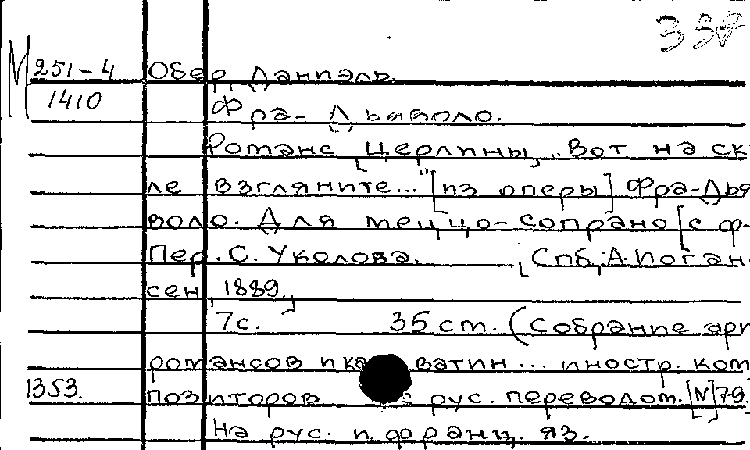 338
М 251-4 Обер, Даниэль.
1410 Фра-Дьяволо.
Романс [Церлины] „Вот на ска
ле взгляните..." [из оперы] Фра-Дья
воло. Для меццо-сопрано [с ф-
Пер. С. Уколова. [Спб, А. Иоган
сен, 1889]
7с. 35 cm. (Собрание ари
романсов и ка ватин... иностр. ком
1353. позиторов с рус. переводом. [N] 79.
На рус. и франц. яз.